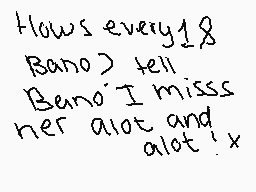 Hows every18
Bano? tell
Bano I misss
her alot and
alot! x